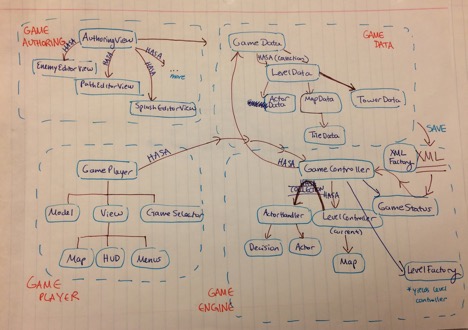 GAME
AUTHORING
AUTHORINGVIEW
HASA
HASA
HASA
HASA
ENEMYEDITORVIEW
PATHEDITORVIEW
SPLASHEDITORVIEW
... more
GAME
DATA
GAMEDATA
HASA (COLLECTION)
LEVELDATA
ACTOR
DATA
MAPDATA
TOWERDATA
TILEDATA
SAVE
XML
FACTORY
XML
GAMEPLAYER
HASA
MODEL
VIEW
GAMESELECTOR
MAP
HUD
MENUS
GAME
PLAYER
HASA
GAMECONTROLLER
COLLECTION
HASA
ACTORHANDLER
LEVELCONTROLLER
(CURRENT)
DECISION
ACTOR
MAP
GAMESTATUS
LEVELFACTORY
* yields level
controller
GAME
ENGINE